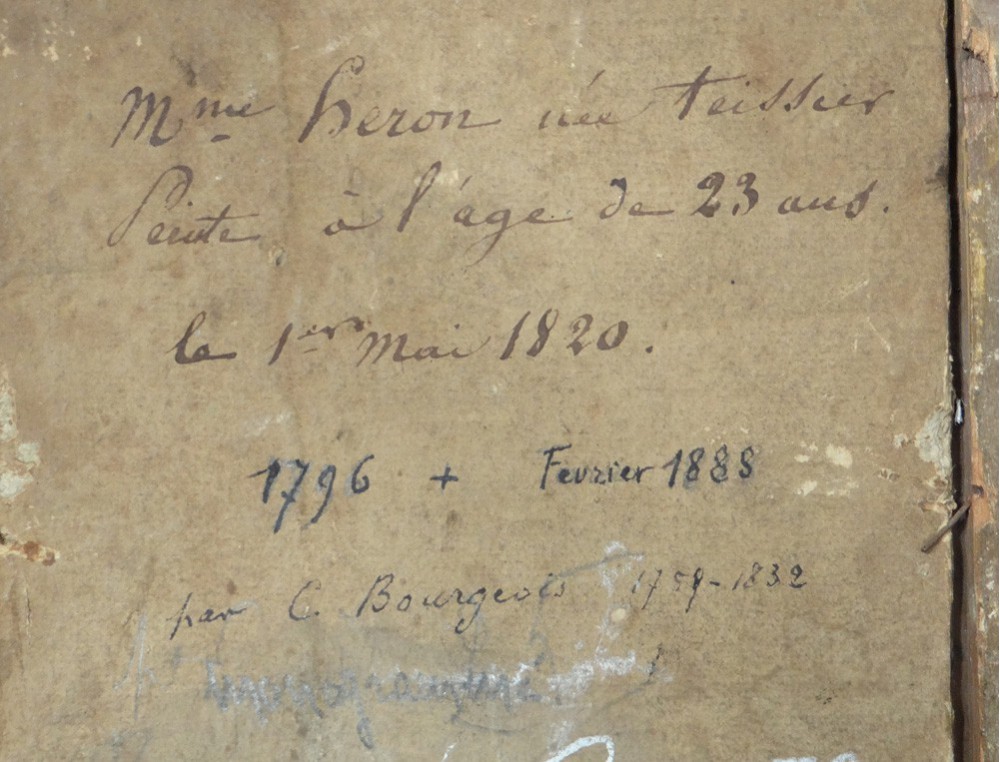 Mme Heron née Teissier
Peinte à l'âge de 23 ans.
le 1er Mai 1820.
1796 + Fevrier 1888
par C. Bourgeois 1759-1832